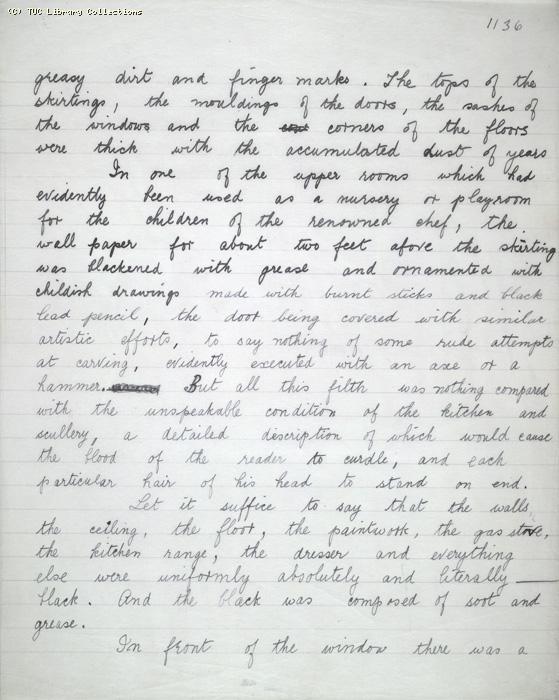 (C) TUC Library Collections
1136
greasy dirt and finger marks. The tops of the
skirtings, the mouldings of the doors, the sashes of
the windows and the corners of the floors
were thick with the accumulated dust of years
In one of the upper rooms which had
evidently been used as a nursery or playroom
for the children of the renowned chef, the
wall paper for about two feet afove the skirting
was blackened with grease and ornamented with
childish drawings made with burnt sticks and black
lead pencil, the door being covered with similar
artistic efforts, to say nothing of some rude attempts
at carving, evidently executed with an axe or a
hammer. But all this filth was nothing compared
with the unspeakable condition of the kitchen and
scullery, a detailed description of which would cause
the blood of the reader to curdle, and each
particular hair of his head to stand on end.
Let it suffice to say that the walls,
the ceiling, the floor, the paintwork, the gas stove,
the kitchen range, the dresser and everything
else were uniformly absolutely and literally —
black. And the black was composed of soot and
grease.
In front of the window there was a